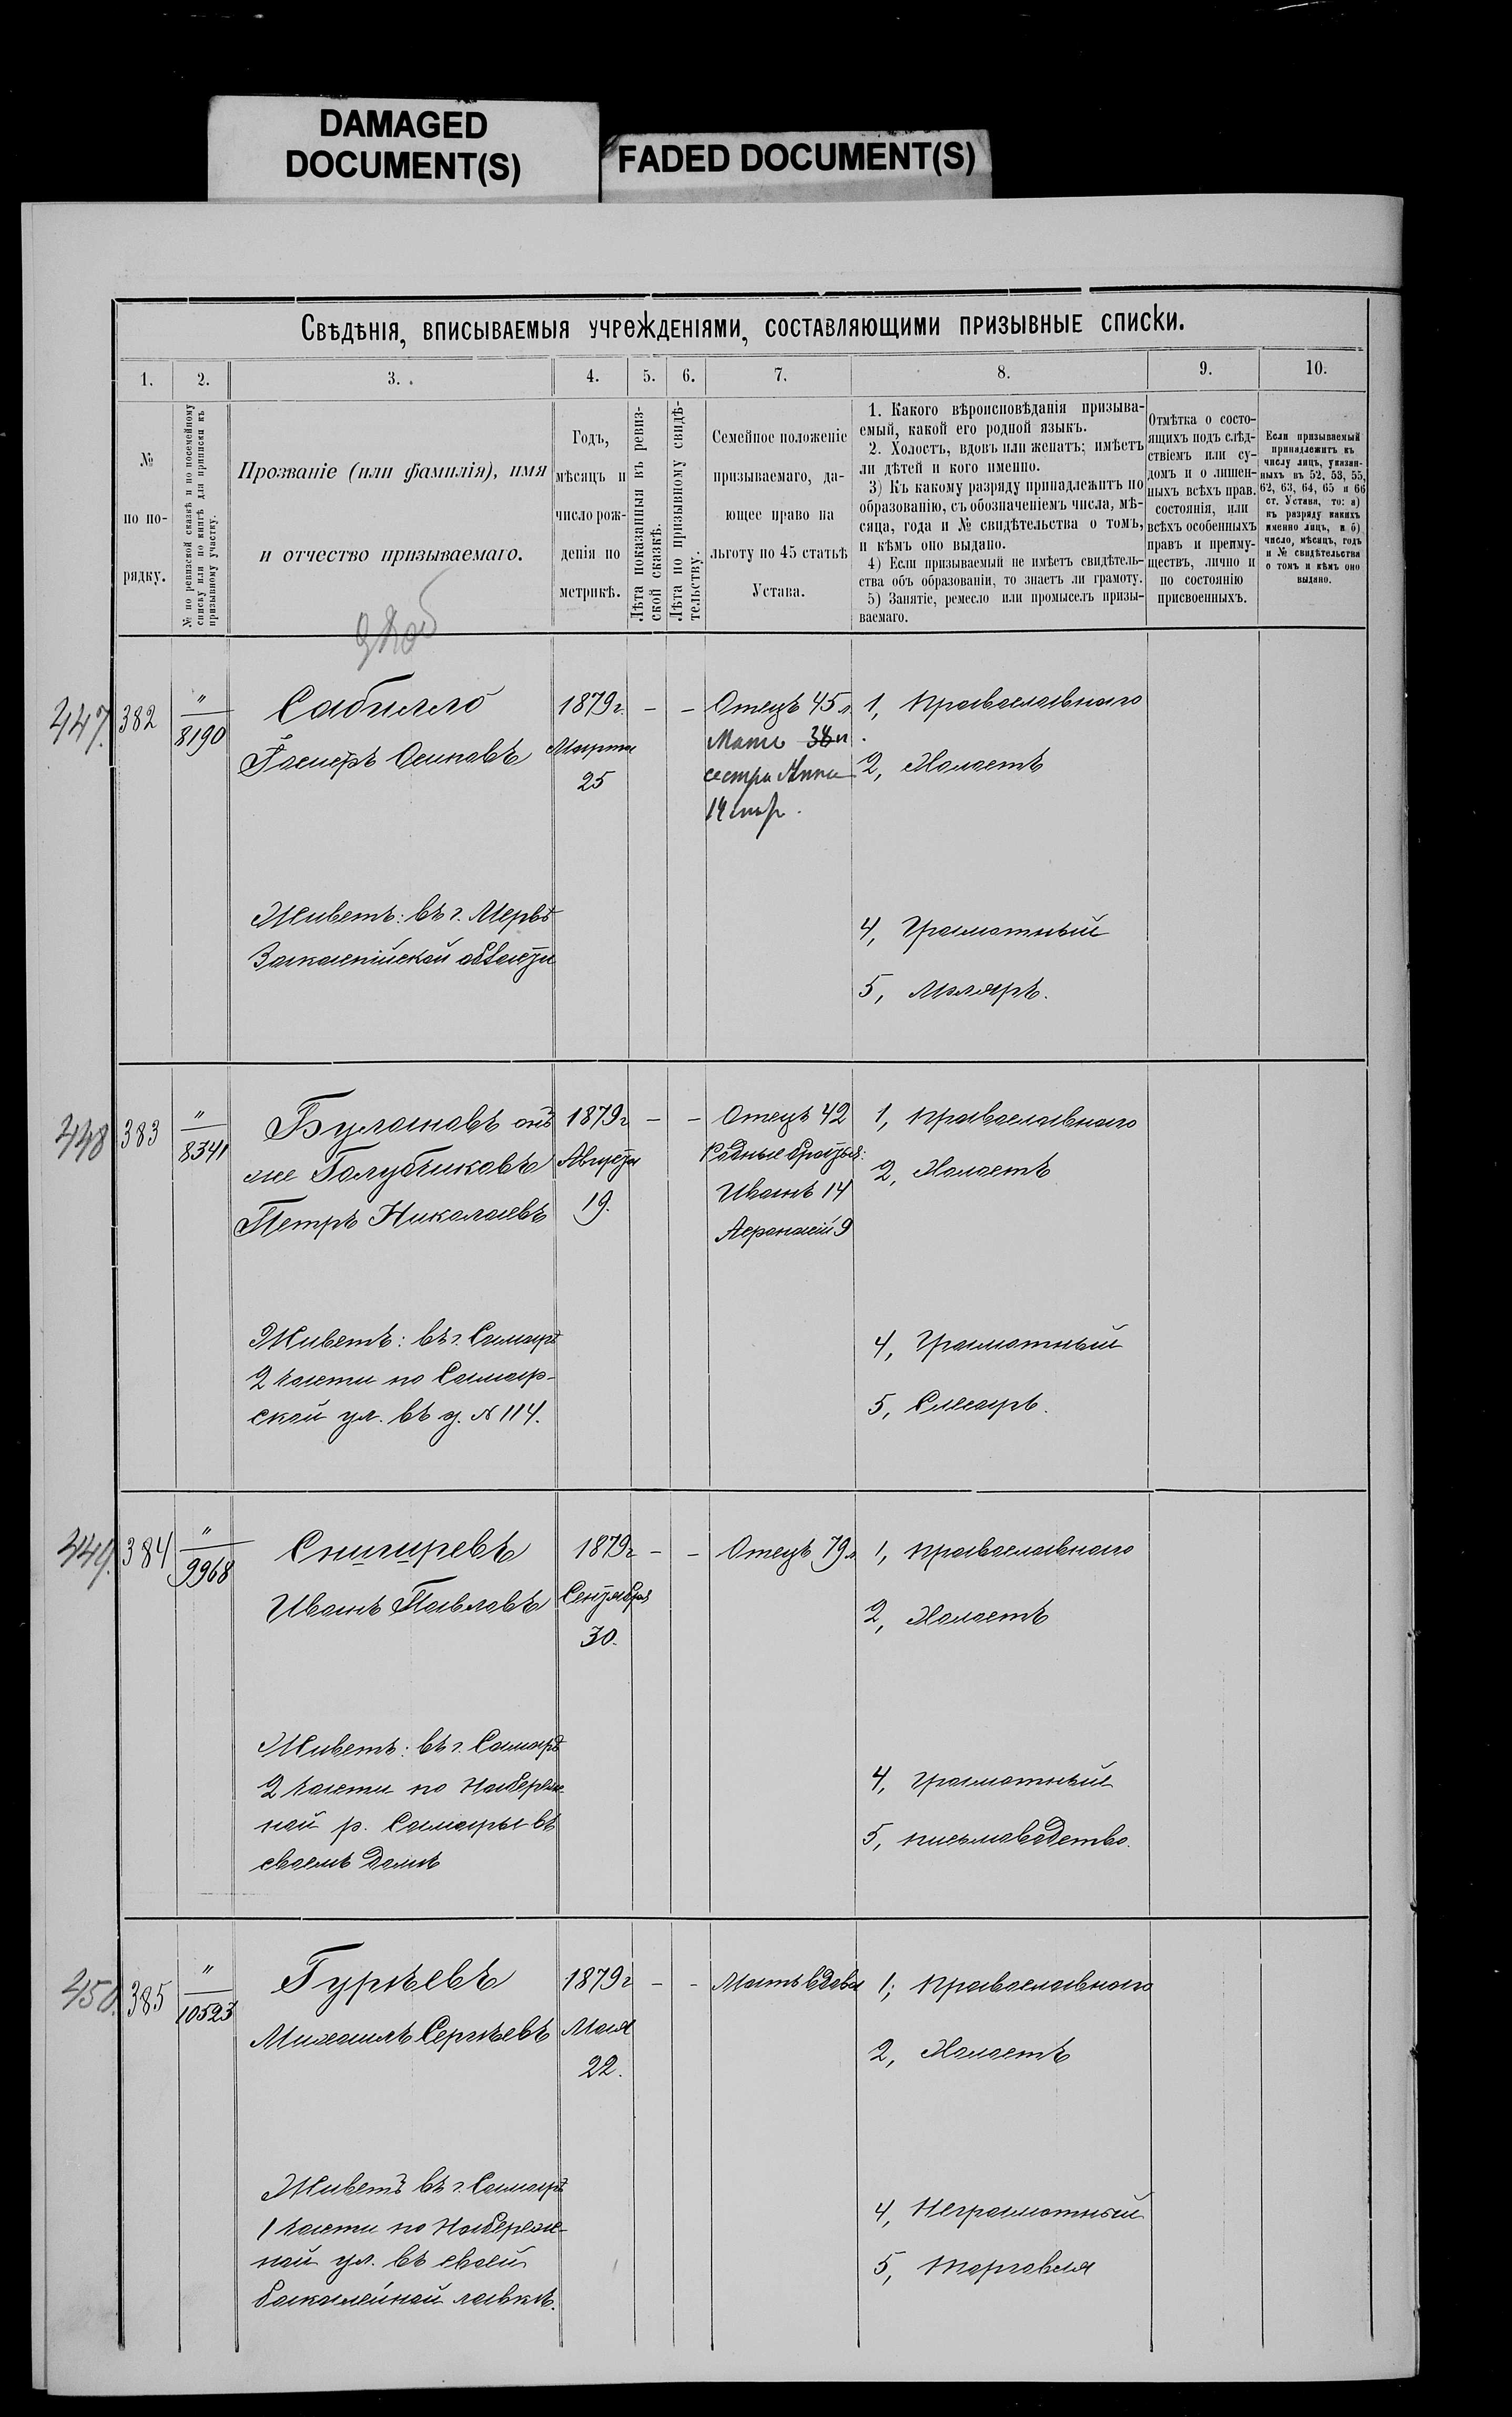 DAMAGED
DOCUMENT(S)
FADED DOCUMENT(S)
Свѣдѣнія, вписываемыя учрежденіями, составляющими призывные списки.
1. 2. 3. 4. 5. 6. 7. 8. 9. 10.
№
по по-
рядку.
№ по ревизской сказкѣ и по посемейному
списку или по книгѣ для приписки къ
призывному участку.
Прозваніе (или фамилія), имя
и отчество призываемаго.
Годъ,
мѣсяцъ и
число рож-
денія по
метрикѣ.
Лѣта показанныя въ ревиз-
ской сказкѣ.
Лѣта по призывному свидѣ-
тельству.
Семейное положеніе
призываемаго, да-
ющее право на
льготу по 45 статьѣ
Устава.
1. Какого вѣроисповѣданія призыва-
емый, какой его родной языкъ.
2. Холостъ, вдовъ или женатъ; имѣетъ
ли дѣтей и кого именно.
3) Къ какому разряду принадлежитъ по
образованію, съ обозначеніемъ числа, мѣ-
сяца, года и № свидѣтельства о томъ,
и кѣмъ оно выдано.
4) Если призываемый не имѣетъ свидѣтель-
ства объ образованіи, то знаетъ ли грамоту.
5) Занятіе, ремесло или промыселъ призы-
ваемаго.
Отмѣтка о состо-
ящихъ подъ слѣд-
ствіемъ или су-
домъ и о лишен-
ныхъ всѣхъ прав.
состоянія, или
всѣхъ особенныхъ
правъ и преиму-
ществъ, лично и
по состоянію
присвоенныхъ.
Если призываемый
принадлежитъ къ
числу лицъ, указан-
ныхъ въ 52, 53, 55,
62, 63, 64, 65 и 66
ст. Устава, то: а)
къ разряду какихъ
именно лицъ, и б)
число, мѣсяцъ, годъ
и № свидѣтельства
о томъ и кѣмъ оно
выдано.
447. 382
"
8190
Сабилло
Осиповъ
1879 г.
Марта
25
- -
Отецъ 45 л.
Мать 38 л
сестра Анна
14
1, Православнаго
2, Холостъ
Живетъ: въ г. Мервѣ
Закаспійской области
4, Грамотный
5, Маляръ.
448 383
"
8341
Булановъ онъ
же Голубчиковъ
Петръ Николаевъ
1879 г
Августа
19.
- -
Отецъ 42
Родные братья:
Иванъ 14
Афанасій 9
1, Православнаго
2, Холостъ
Живетъ: въ г. Самарѣ
2 части по Самар-
ской ул. въ д. № 114.
4, Грамотный
5, Слесарь.
449. 384
"
9968
Снигиревъ
Иванъ Павловъ
1879 г
Сентября
30.
- -
Отецъ 79 л
1, Православнаго
2, Холостъ
Живетъ: въ г. Самарѣ
2 части по Набереж-
ной р. Самары въ
своемъ домѣ
4, Грамотный
5, письмоводство.
450. 385
"
10523
Гурьевъ
Михаилъ Сергѣевъ
1879 г
Мая
22.
- -
Мать вдова
1, Православнаго
2, Холостъ
Живетъ въ г. Самарѣ
1 части по Набереж-
ной ул. въ своей
бакалейной лавкѣ.
4, Неграмотный
5, Торговля